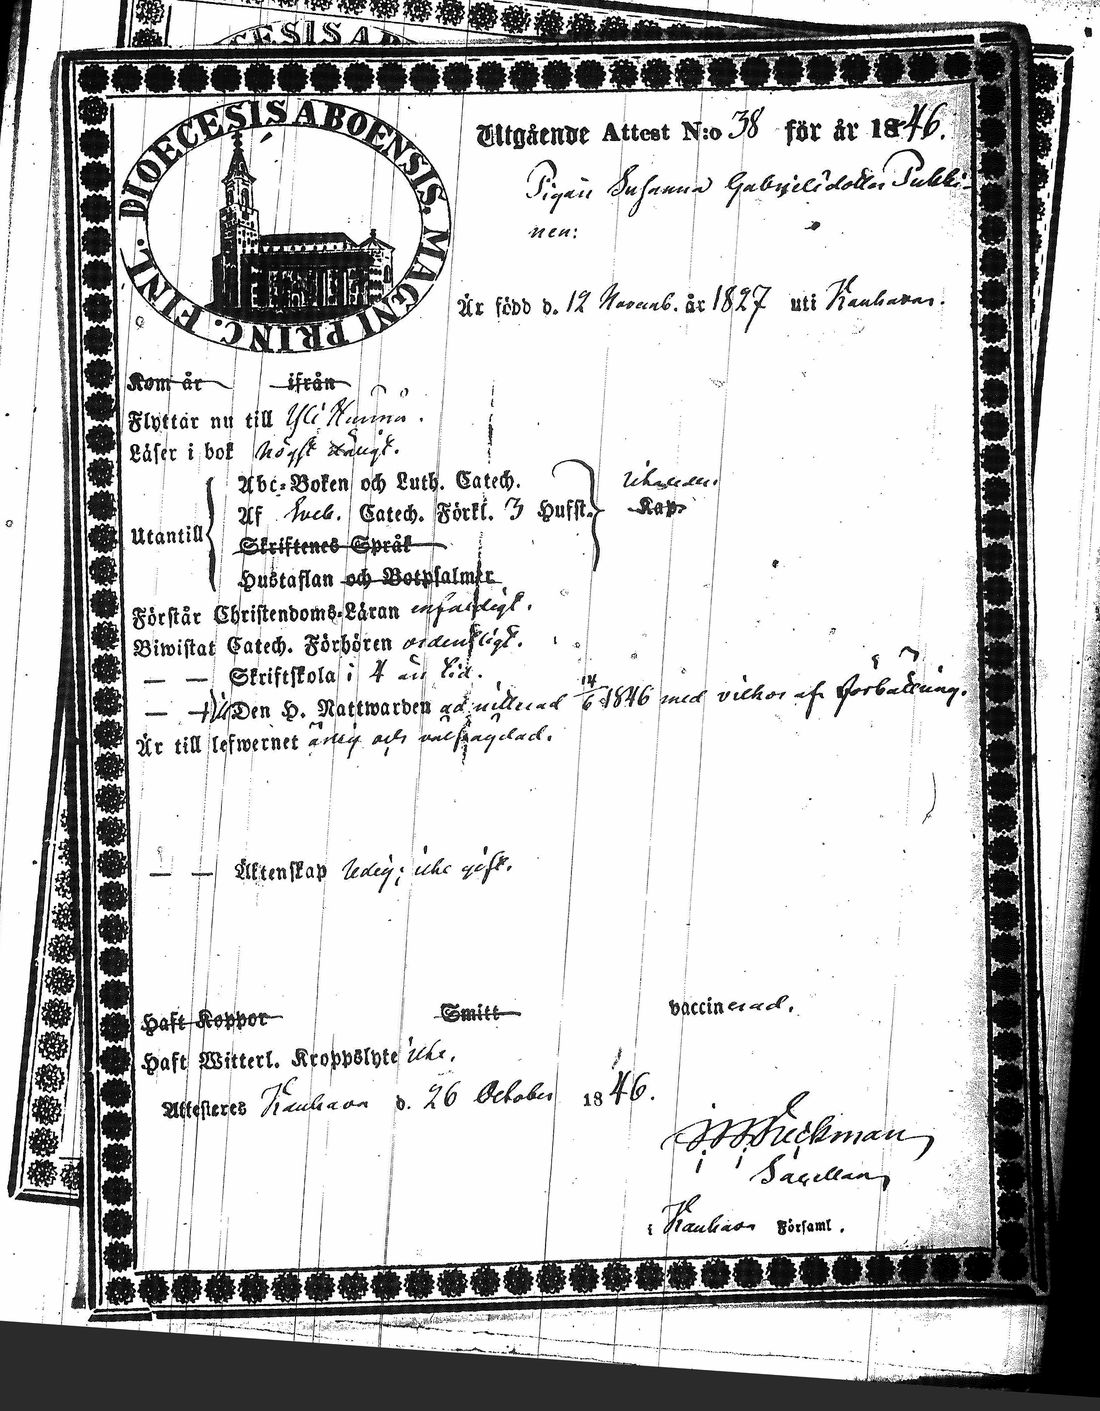 CESIS AB
DIOECESIS ABOENSIS. MAGNI PRINC. FINL.
Utgående Attest N:o 38 för år 1846.
Pigan Susanna Gabrielsdotter Pukki-
nen:
Är född d. 12 Novemb. år 1827 uti Kauhava.
Kom år ifrån
Flyttar nu till Yli Härmä.
Läser i bok högst trögt.
Abc-Boken och Luth. Catech.
Af Sveb. Catech. Förkl. 3 Hufst. Kap
Utantill
Skriftenes Språk
Hustaflan och Botpsalmer
Förstår Christendoms-Läran enfaldigt.
Biwistat Catech. Förhören ordentligt.
— — Skriftskola i 4 års tid.
— — till Den H. Nattwarden admitterad 14/6 1846 med vilkor af förbättring.
Är till lefwernet ärlig och välfrägdad.
— — Äktenskap ledig; icke gift.
Haft Koppor Smitt vaccinerad.
Haft Witterl. Kroppslyte icke.
Attesteres Kauhava d. 26 October 1846.
Capellan
i Kauhava Församl.